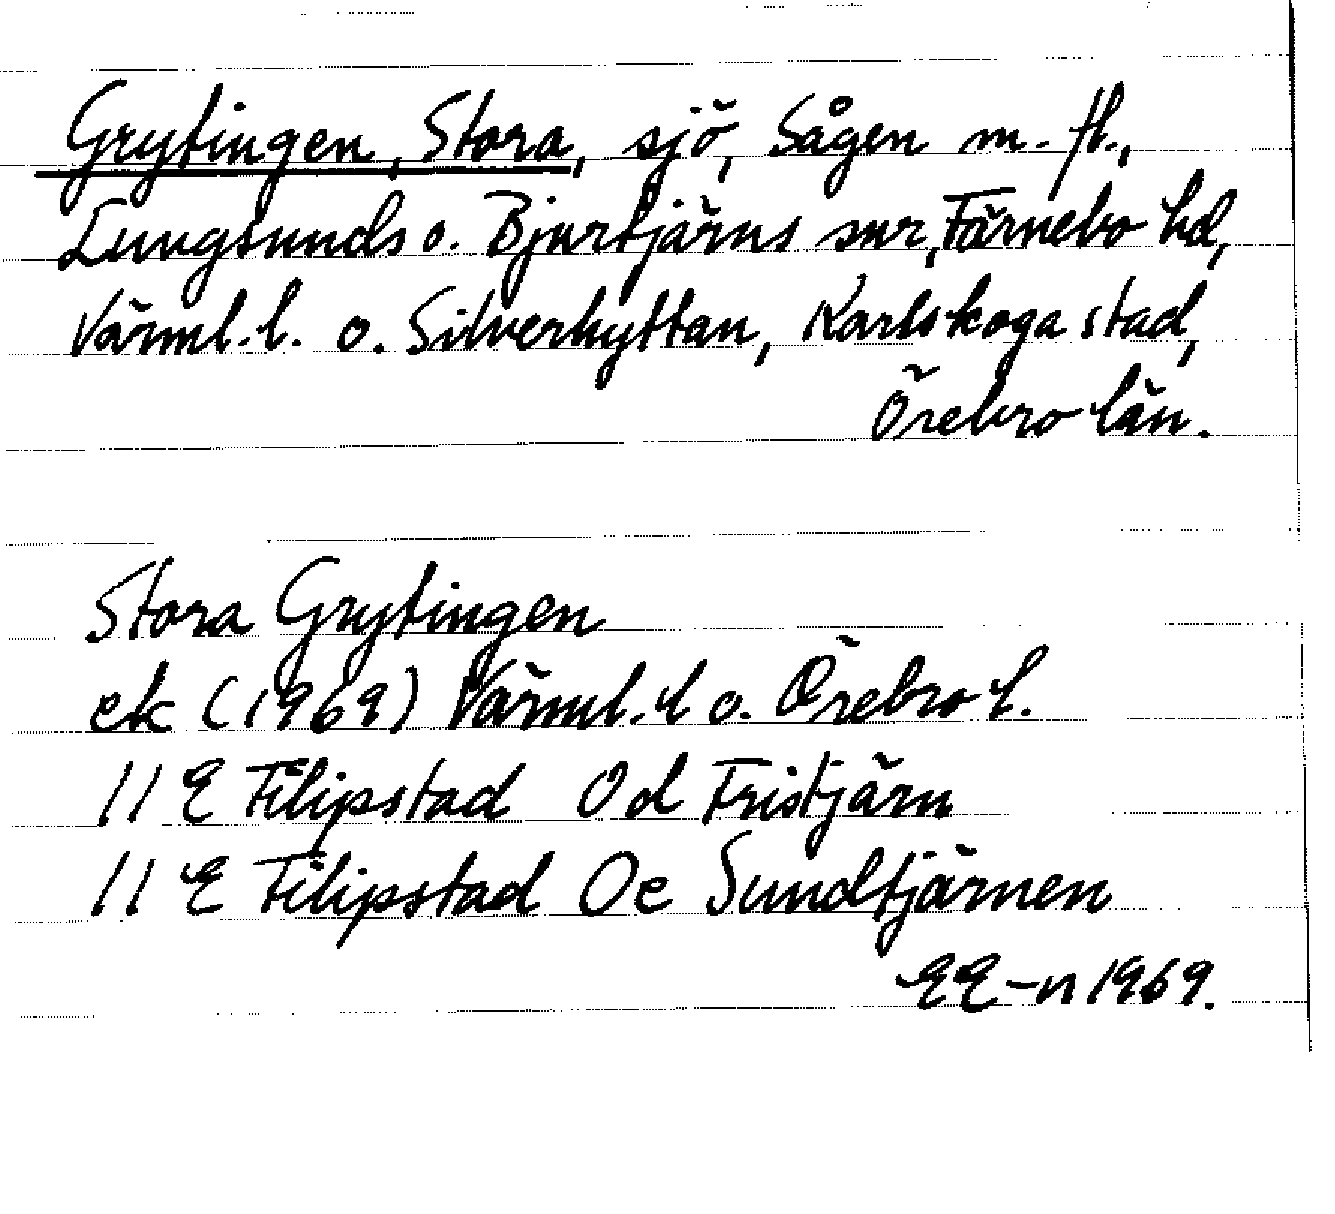 Grytingen, Stora, sjö, Sågen m. fl.,
Lungsunds o. Bjurtjärns snr, Färnebo hd,
Värml. l. o. Silverhyttan, Karlskoga stad,
Örebro län.
Stora Grytingen
ek (1969) Värml. l o. Örebro l.
11 E Filipstad Od Fristjärn
11 E Filipstad Oe Sundtjärnen
EE-n 1969.